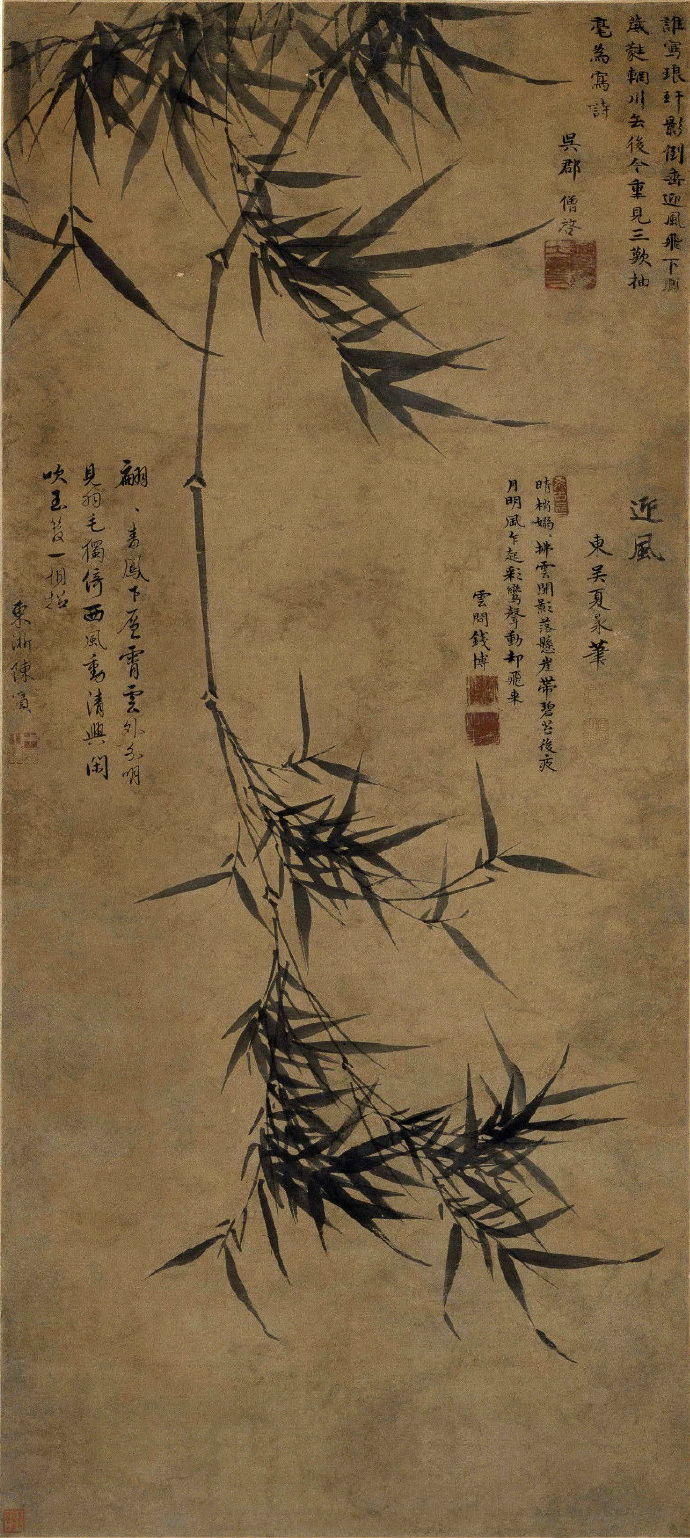 誰寫琅玕影倒垂迎風飛下
葳蕤輞川去後今重見三歎抽
毫為寫詩
吳郡 僧啓
近風
東吳夏㫤筆
時梢嫋、拂雲開影落懸崖帶碧苔後夜
月明風乍起彩鸞聲動却飛來
雲間錢博
翩、青鳳下層霄雲外分明
見羽毛獨倚西風動清興閑
吹玉笙一相招
東浙陳